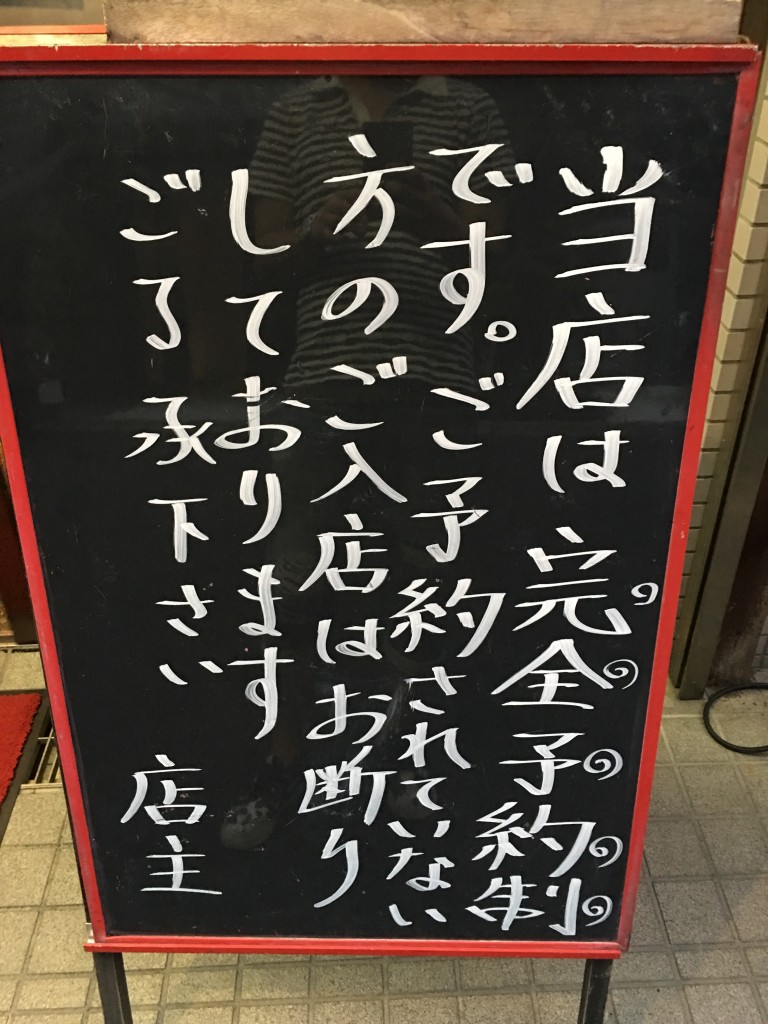 当店は完全予約制
です。ご予約されていない
方のご入店はお断り
しております
ごろ承下さい
店主